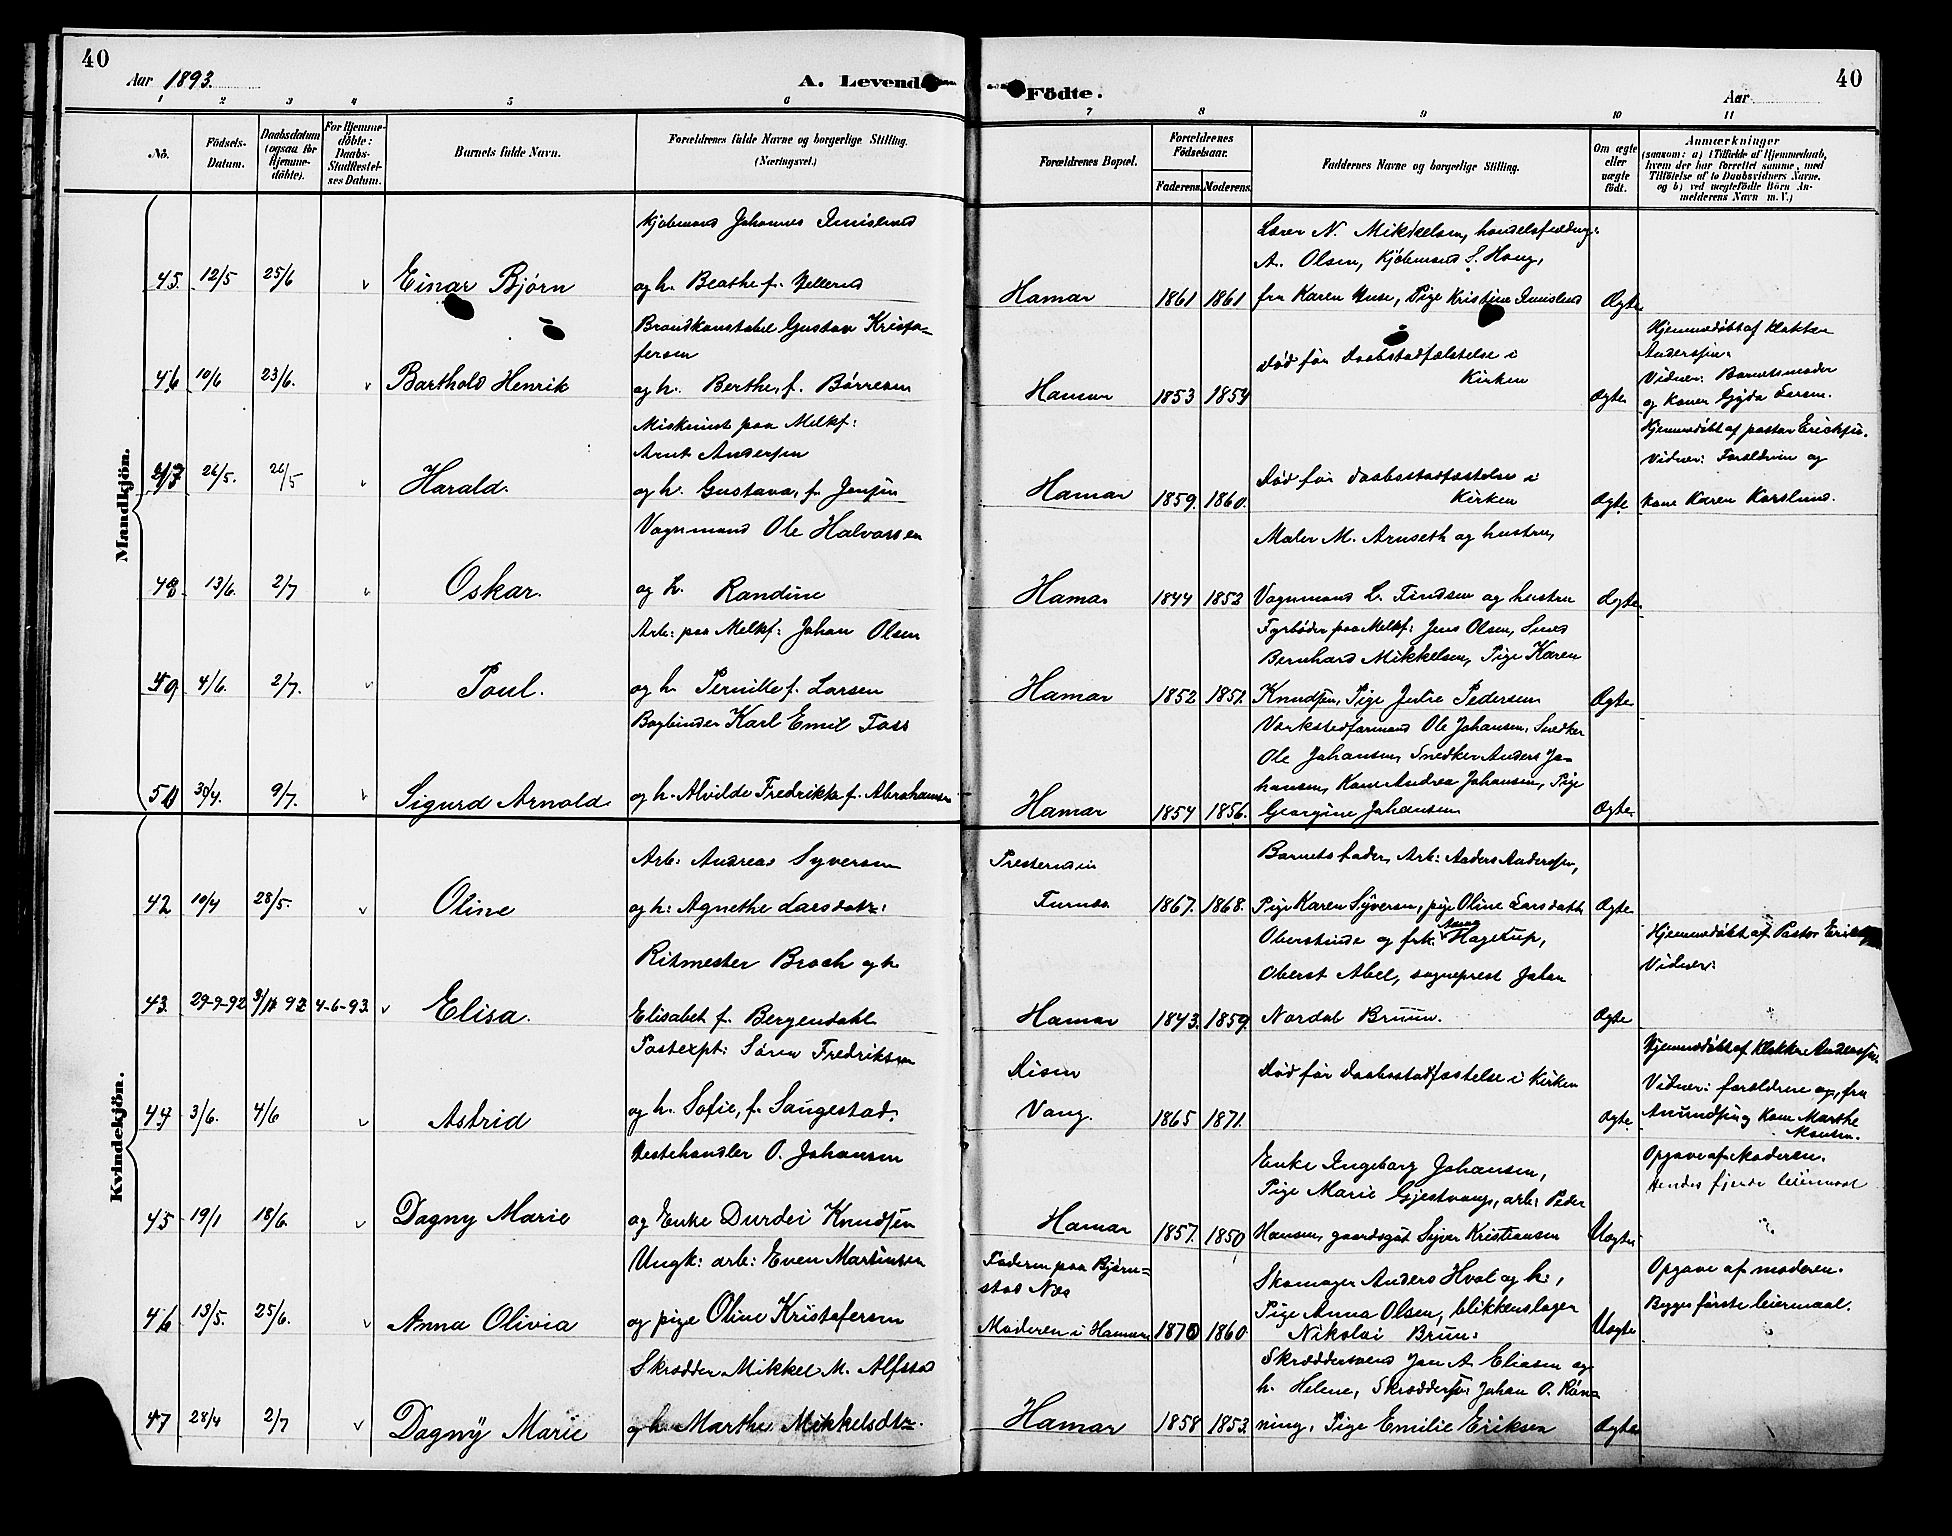 40
Aar 1893.
A. Levende
Födte.
Aar
40
1 2 3 4 5 6 7 8 9 10 11
No.
Födsels-Datum.
Daabsdatum (ogsaa for Hjemme-döbte).
For Hjemme-döbte: Daabs-Stadfæstel-ses Datum.
Barnets fulde Navn.
Forældrenes fulde Navne og borgerlige Stilling. (Næringsvei.)
Forældrenes Bopæl.
Forældrenes Födselsaar.
Faderens. Moderens.
Faddernes Navne og borgerlige Stilling.
Om ægte eller uægte födt.
Anmærkninger
(saasom: a) i Tilfælde af Hjemmedaab, hvem der har forrettet samme, med Tilföielse af to Daabsvidners Navne. og b) ved uægtefödte Börn An-melderens Navn m. V.)
Mandkjön.
Kjøbmand Johannes
45. 12/5 25/6 v Einar Bjørn
og h. Beathe f.
Hamar 1861 1861
Lærer N. Mikkelsen,
A. Olsen, Kjøbmand S. Haug,
fru Karen Huse, Pige Kristine
Ægte
46 10/6 23/6. v Barthold Henrik
Brandkonstabel Gustav Kristo-
fersen
og h. Berthe, f. Børresen
Hamar 1853 1859
død før Daabstadfæstelse i
Kirken
Ægte
Hjemmedøbt af klokker
Anderssen.
Vidner: Barnets moder
og konen Gyda Larsen.
47 26/5. 26/5 v Harald.
Maskinist paa Melkf:
Arnt Andersen
og h. Gustava, f. Jensen
Hamar 1859. 1860.
Død før daabsstadfæstelse i
Kirken
Ægte
Hjemmedøbt af pastor Ericksen.
Vidner: Forældrene og
kone Karen Karslund.
48 13/6. 2/7 v Oskar.
Vognmand Ole Halvorsen
og h. Randine
Hamar 1844 1852
Maler M. Arnseth og hustru,
Vognmand L. Findsen og hustru
Ægte
49 4/6. 2/7. v Poul.
Arb: paa Melkf: Johan Olsen
og h. Pernille f. Larsen
Hamar 1852 1851.
Fyrbøder paa Melkf: Jens Olsen, Smed
Bernhard Mikkelsen, Pige Karen
Knudsen, Pige Julie Pedersen
Ægte
50 30/4. 9/7. v Sigurd Arnold.
Bogbinder Karl Emil Foss
og h. Alvilde Fredrikke f. Abrahamsen
Hamar 1854 1856.
Værkstedformand Ole Johansen, Snedker
Ole Johansen, Snedker Anders Jo-
hansen, Kone Andrea Johansen, Pige
Georgine Johansen
Ægte
Kvindekjön.
42 10/4 28/5. v Oline
Arb: Andreas Syversen
og h: Agnethe Larsdatr:
Furnæs 1867. 1868.
Barnets fader, Arb: Anders Anderssen,
Pige Karen Syversen, pige Oline Larsdatter
Ægte
43. 29-9-92 92 4-6-93. v Elisa.
Ritmester Broch og h
Elisabet f. Bergendahl
Hamar 1843. 1859.
Oberstinde og frk. Anna Hagerup,
Oberst Abel, sogneprest Johan
Nordal Bruun.
Ægte
Hjemmedøbt af Pastor
Vidner:
44 3/6. 4/6 v Astrid
Postexpt: Søren Fredriksen
og h. Sofie, f. Saugestad.
Vang. 1865 1871.
død før daabsstadfæstelse i Kirken
Ægte
Hjemmedøbt af Klokker Anderssen.
Vidner: forældrene og, fru
og kone Marthe
45 19/1 18/6. v Dagny Marie
Hestehandler O. Johansen
og Enke Durdei Knudsen
Hamar 1857. 1850,
Enke Ingeborg Johansen,
Pige Marie Gjestvang, arb: Peder
Hansen, gaardsgut Syver Kristiansen
Uægte
Opgave af Moderen.
Hendes fjerde leiermaal
46 13/5. 25/6. v Anna Olivia
Ungk: arb: Even Martinsen
og pige Oline Kristofersen
Faderen paa Bjørn=
stad Næs
Moderen i Hamar 1870 1860.
Skomager Anders Hval og h:,
Pige Anna Olsen, blikkenslager
Nikolai Brun:
Uægte
Opgave af moderen.
Begges første leiermaal.
47 28/4 2/7 v Dagny Marie
Skrædder Mikkel M. Alfstad
og h. Marthe Mikkelsdtr.
Hamar 1858 1853.
Skræddersvend Jan A. Eliasen og
h. Helene, Johan O. Røn=
ning, Pige Emilie Eriksen
Ægte